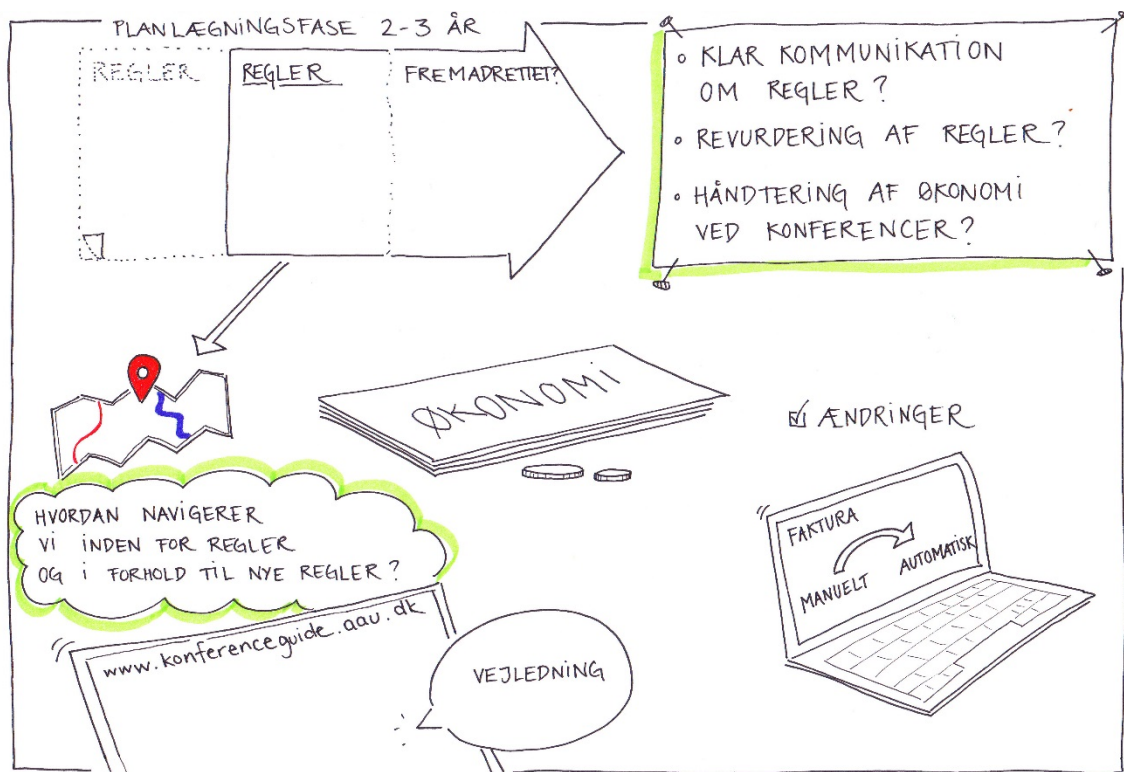 PLANLÆGNINGSFASE 2-3 ÅR
REGLER
REGLER
FREMADRETTET?
• KLAR KOMMUNIKATION
OM REGLER?
• REVURDERING AF REGLER?
• HÅNDTERING AF ØKONOMI
VED KONFERENCER?
ØKONOMI
☑ ÆNDRINGER
HVORDAN NAVIGERER
VI INDEN FOR REGLER
OG I FORHOLD TIL NYE REGLER?
FAKTURA
MANUELT
AUTOMATISK
www.konferenceguide.aau.dk
VEJLEDNING